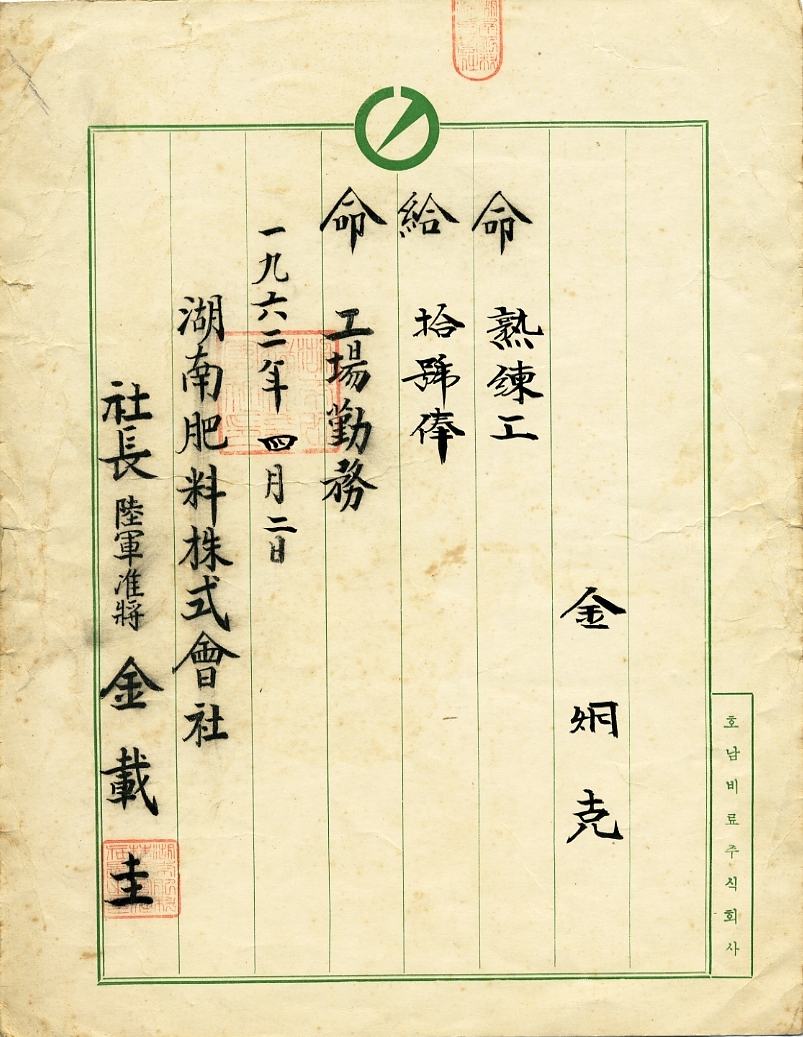 金炯克
命 熟練工
給 拾號俸
命 工場勤務
一九六二年 四月二日
湖南肥料株式會社
社長 陸軍准將 金載圭
호남비료주식회사